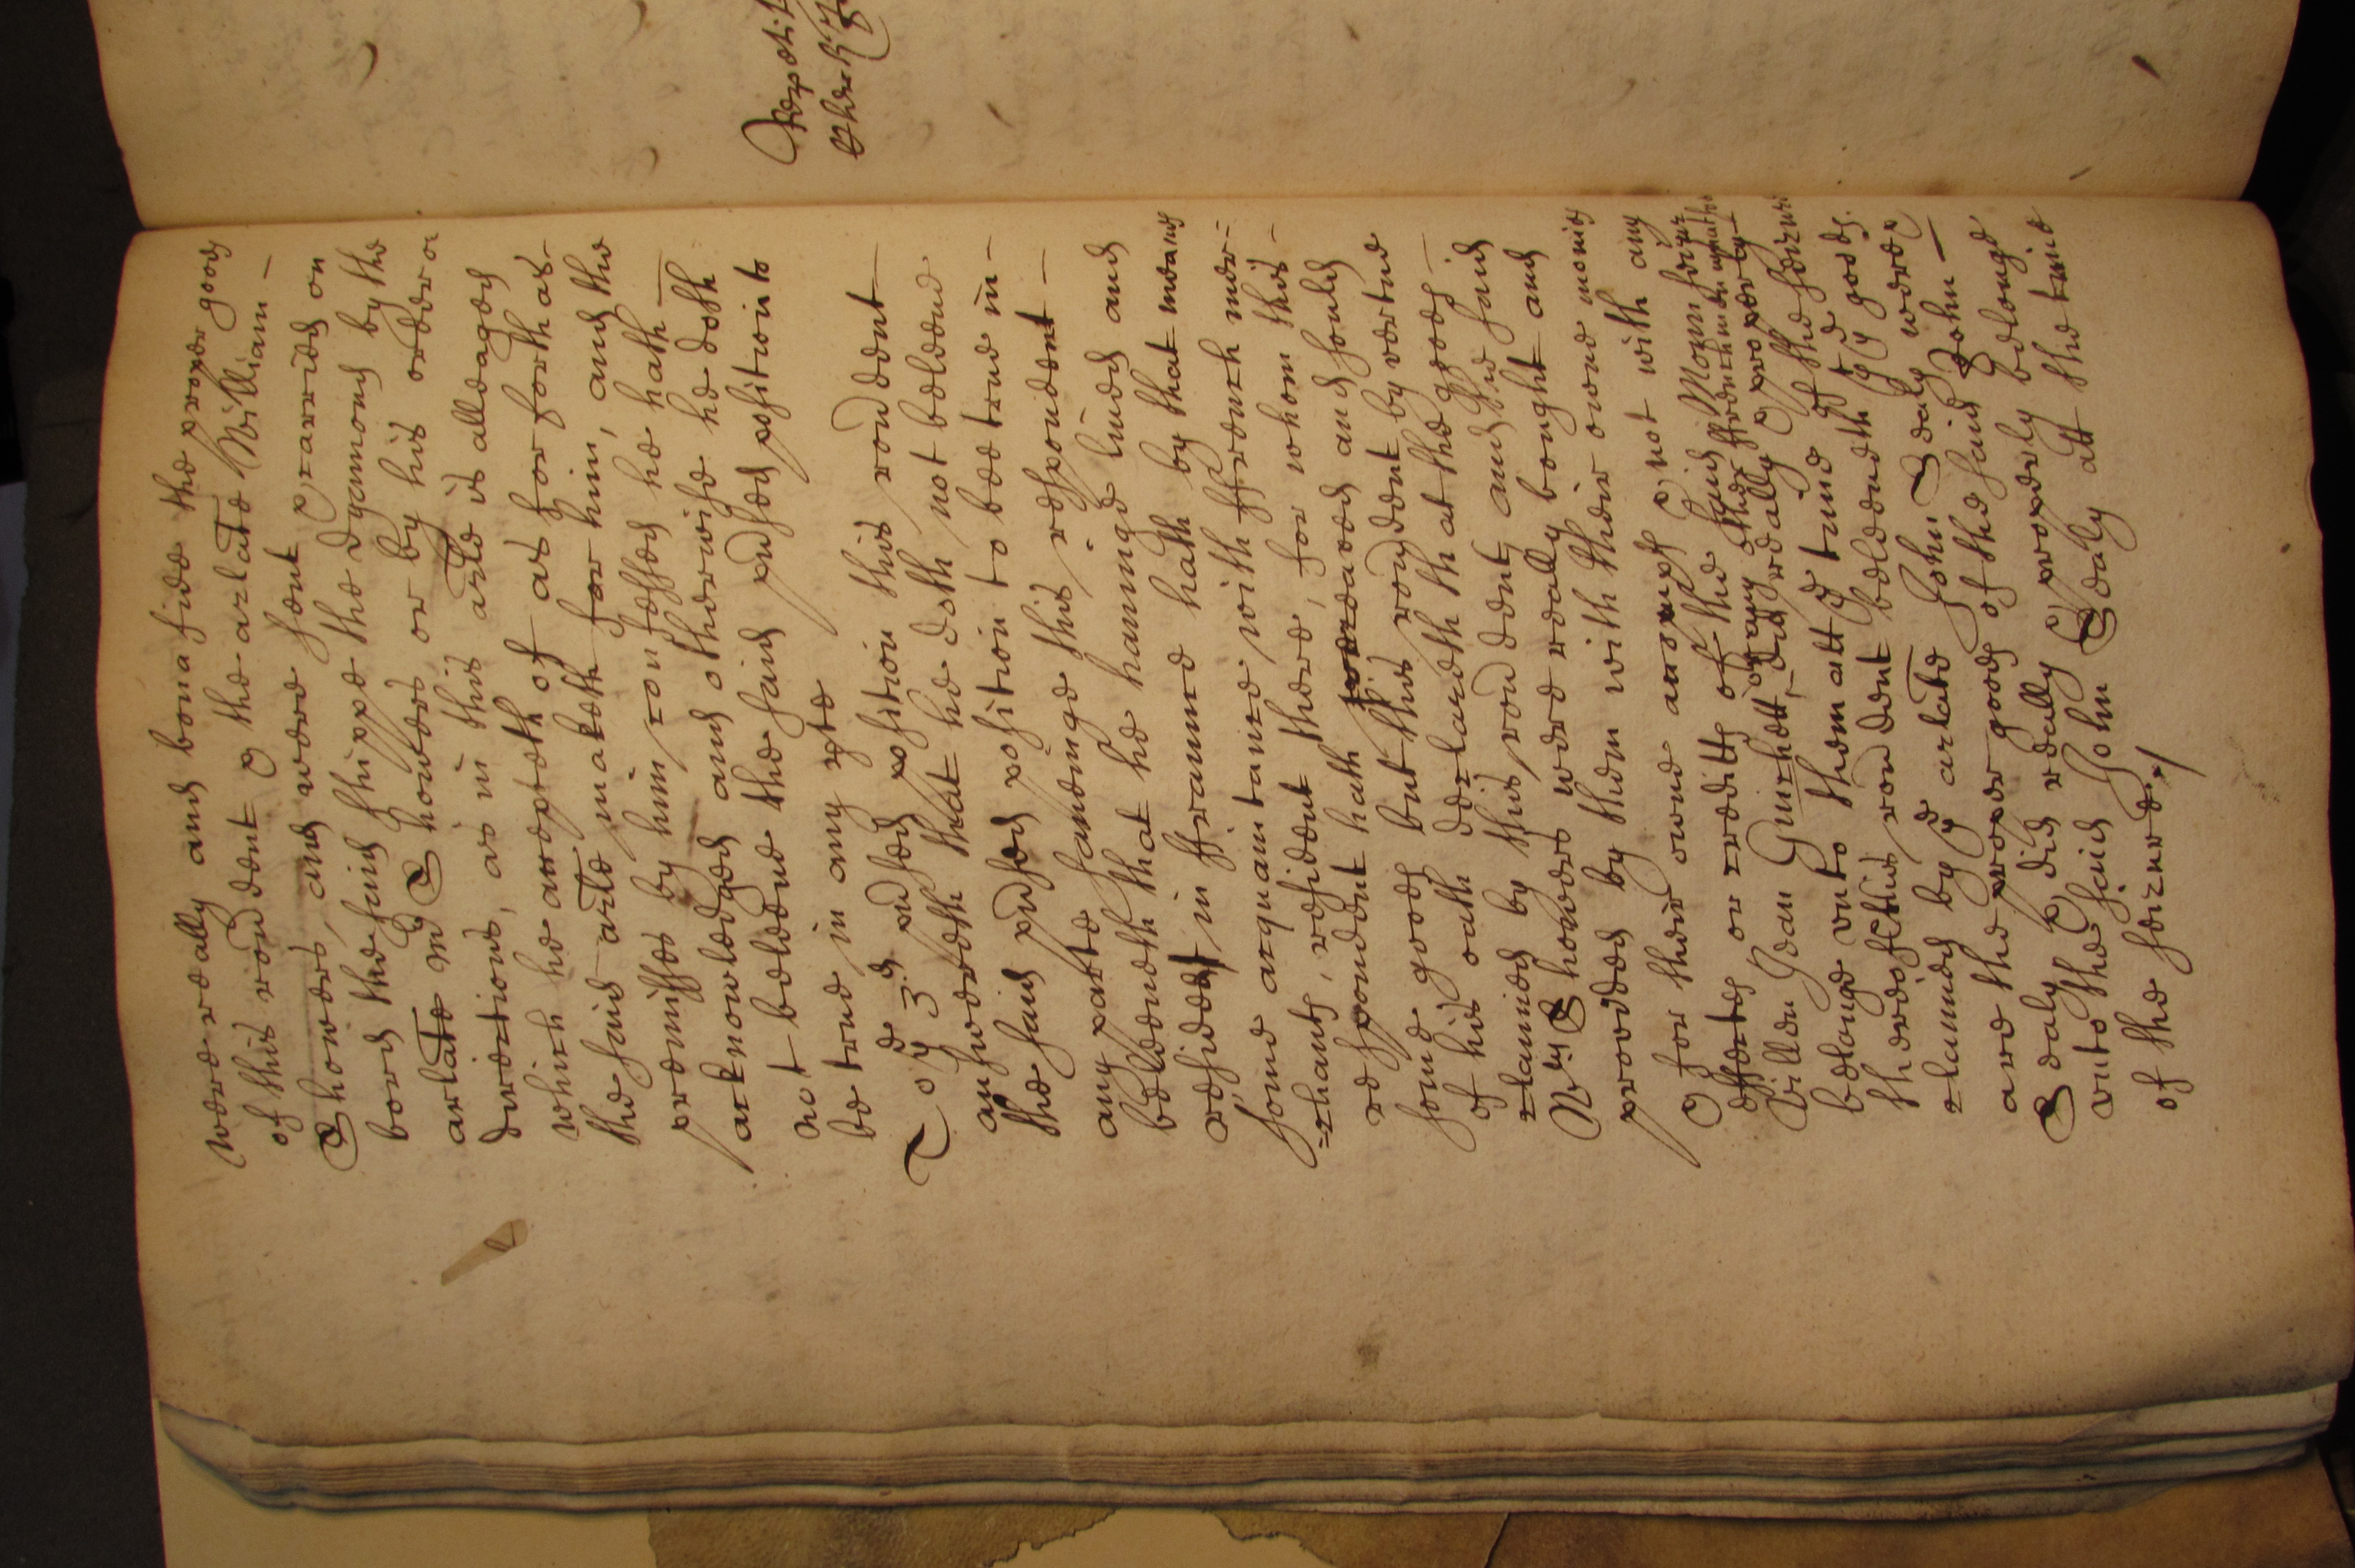 were really and bona fide the proper goods
of this rondent & the arlate William -
Showers, and were sent & carried on
bord the said shippe the dyamond by the
arlate Wm Showers or by his order or
directions, as in this arle is alleaged
which he accepteth of as for forth as
the said arle maketh for him, and the
premisses by him confessed he hath
acknowledged and otherwise he doth
not beleeve the said pnsed position to
be true in any pte
To ye 3.d pnsed position this rondent
answereth that he doth not beleeve
the said pnsed position to bee true in -
any parte saveinge this respondent -
beleeveth that he havinge lived and
resided in ffraunce hath by that meanes
some acquaintance with ffrench mer=
=chants, resident there, for whom this -
respondent hath and sould
some goods but this rondent by vertue
of his oath declareth that the goods
claimed by this rondent and the said
Wm Showers were really bought and
provided by them with their owne monies
& for their owne accompts & not with any
effects or credits of the said Monn sieur
Villeu Jean or any other Frenchman whatsoever
belonge unto them att ye time of the seizure
thereof this rondent beleeveth ye goods
claimed by ye arlate John Sealy were &
are the proper goods of the said John -
Sealy & did really & properly belonge
unto the said John Sealy att the time
of the seizure./